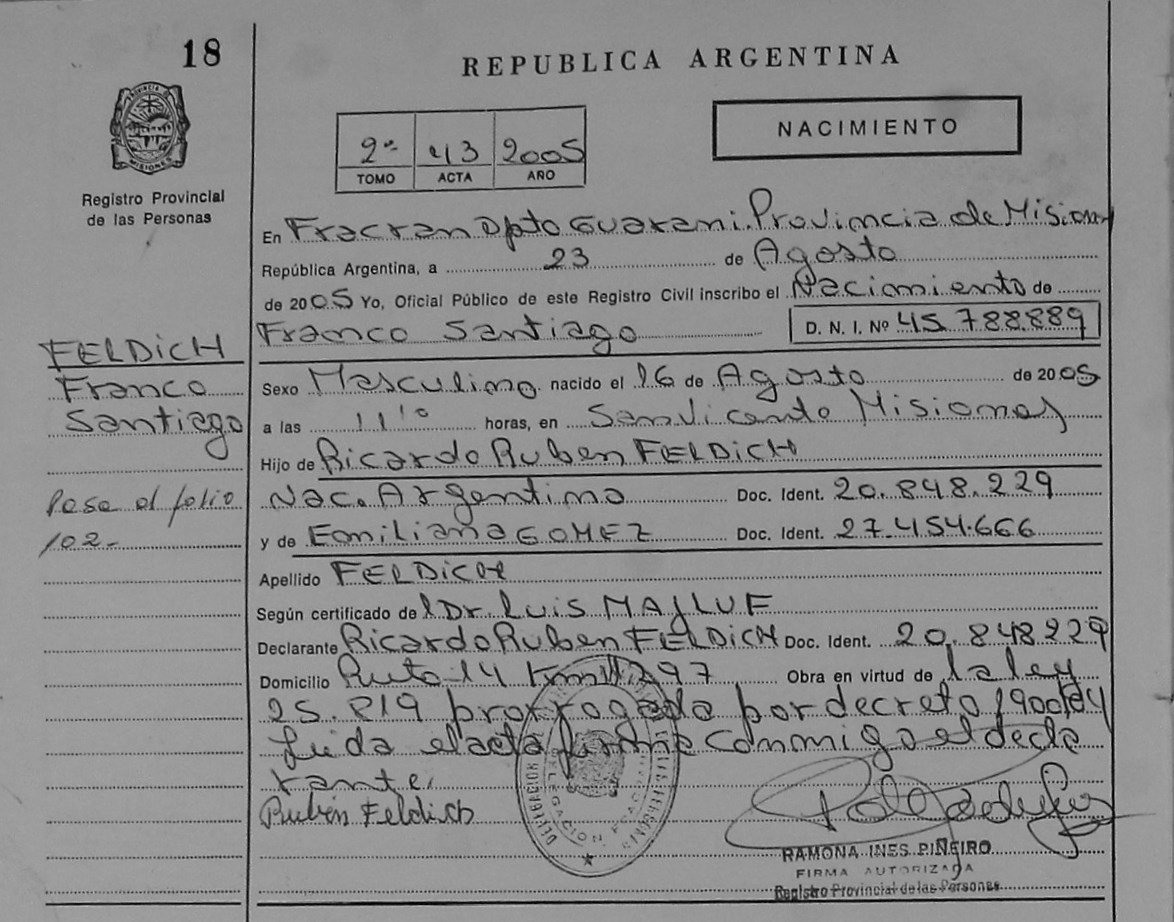 18
REPUBLICA ARGENTINA
PROVINCIA DE
MISIONES
2º 43 2005
TOMO ACTA AÑO
NACIMIENTO
Registro Provincial
de las Personas
En Fracran Dpto Guarani. Provincia de Misiones
República Argentina, a 23 de Agosto
de 2005 Yo, Oficial Público de este Registro Civil inscribo el Nacimiento de
Franco Santiago D. N. I. Nº 45.788.889
FELDICH
Franco
Santiago
Sexo Masculino nacido el 16 de Agosto de 2005
a las 11'10 horas, en San Vicente Misiones
Hijo de Ricardo Ruben FELDICH
Nac. Argentino Doc. Ident. 20.848.229
Pase al folio
102-
y de Emiliana GOMEZ Doc. Ident. 27.454.666
Apellido FELDICH
Según certificado del Dr. Luis MAJLUF
Declarante Ricardo Ruben FELDICH Doc. Ident. 20.848.229
Domicilio Ruta 14 Km 1297 Obra en virtud de la ley
25.819 prorrogada por decreto 1900/04
Leida el acta firma conmigo el decla
rante.
Rubén Feldich
RAMONA INES PIÑEIRO
FIRMA AUTORIZADA
Registro Provincial de las Personas